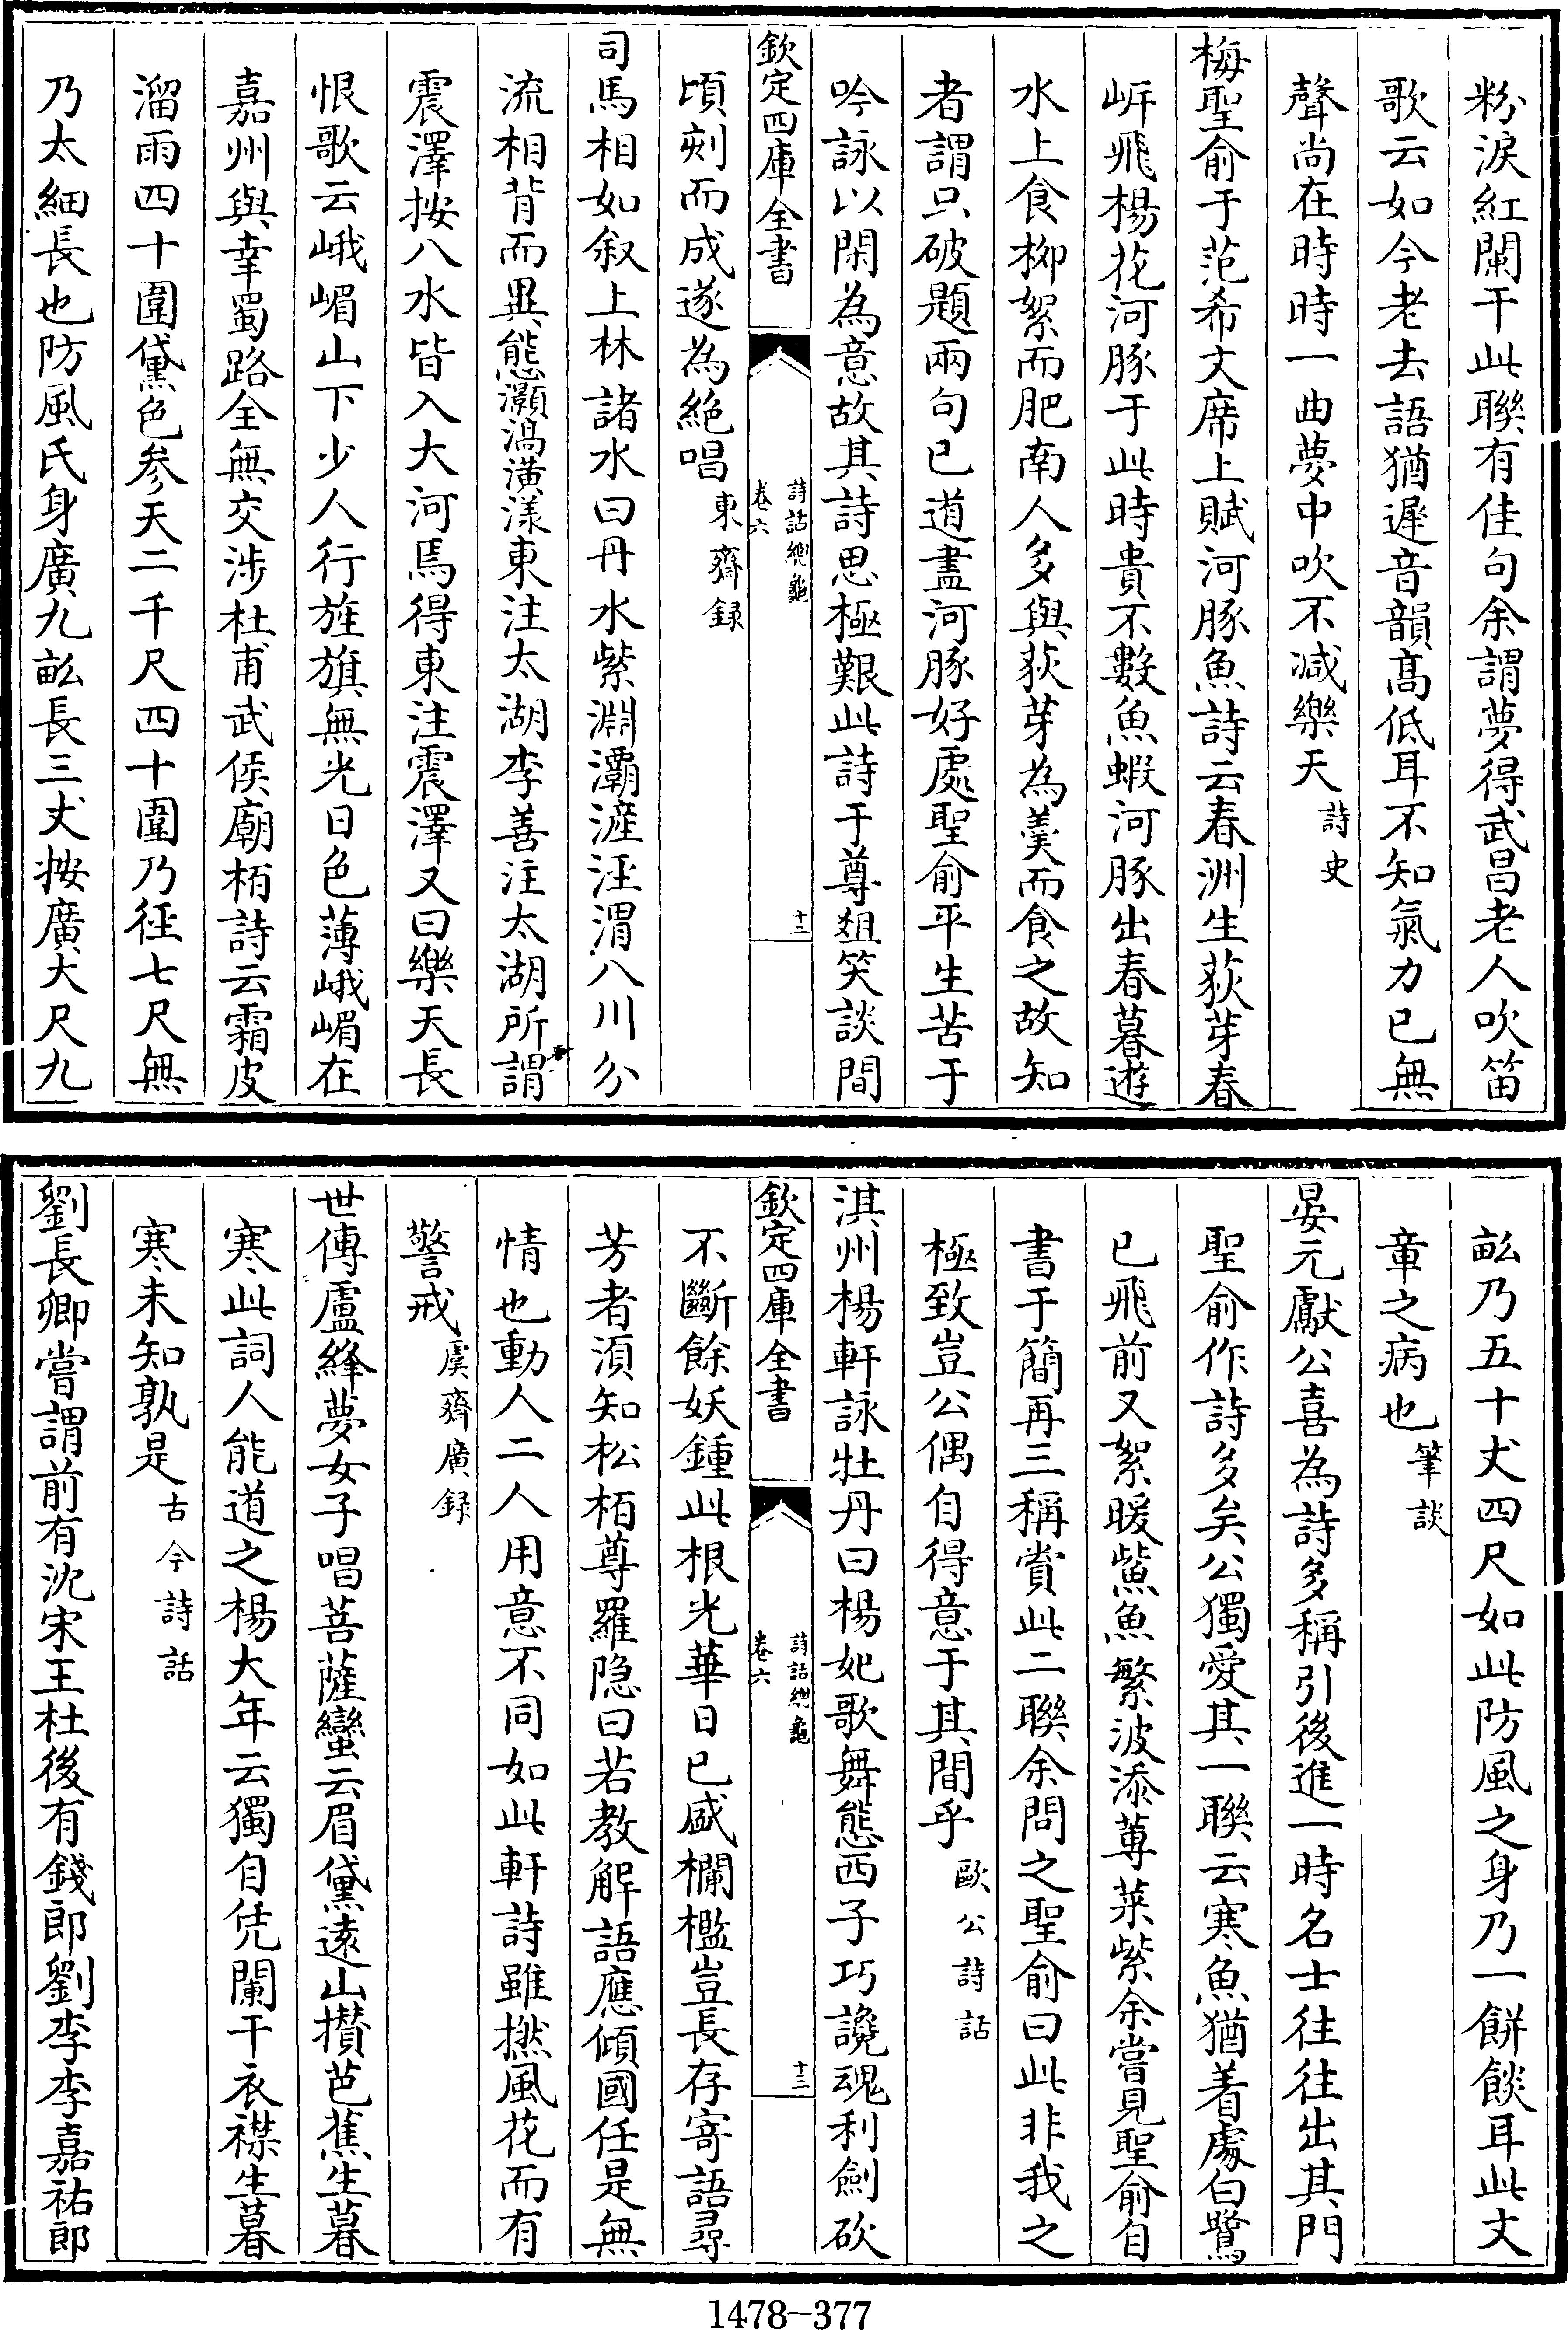 粉淚紅闌干此聯有佳句余謂夢得武昌老人吹笛
歌云如今老去語猶遲音韻髙低耳不知氣力已無
聲尚在時時一曲夢中吹不减樂天詩史
梅聖俞于范希文席上賦河豚魚詩云春洲生荻芽春
岍飛楊花河豚于此時貴不數魚蝦河豚出春暮遊
水上食柳絮而肥南人多與荻芽為羮而食之故知
者謂只破題兩句已道盡河豚好處聖俞平生苦于
吟詠以閑為意故其詩思極艱此詩于尊俎笑談間
欽定四庫全書
詩話總龜
卷六
十二
頃刻而成遂為絶唱東齋録
司馬相如叙上林諸水曰丹水紫淵灞滻涇渭八川分
流相背而異態灝溔潢漾東注太湖李善注太湖所謂
震澤按八水皆入大河馬得東注震澤又曰樂天長
恨歌云峨嵋山下少人行旌旗無光日色薄峨嵋在
嘉州與幸蜀路全無交涉杜甫武侯廟栢詩云霜皮
溜雨四十圍黛色参天二千尺四十圍乃徑七尺無
乃太細長也防風氏身廣九畝長三丈按廣大尺九
畝乃五十丈四尺如此防風之身乃一餅餤耳此文
章之病也筆談
晏元獻公喜為詩多稱引後進一時名士往往出其門
聖俞作詩多矣公獨愛其一聯云寒魚猶着處白鷺
已飛前又絮暖鮆魚繁波添蓴菜紫余嘗見聖俞自
書于簡再三稱賞此二聯余問之聖俞曰此非我之
極致豈公偶自得意于其間乎歐公詩話
淇州楊軒詠牡丹曰楊妃歌舞態西子巧讒魂利劍砍
欽定四庫全書
詩話總龜
卷六
十三
不斷餘妖鍾此根光華日已盛欄檻豈長存寄語尋
芳者須知松栢尊羅隐曰若教解語應傾國任是無
情也動人二人用意不同如此軒詩雖撚風花而有
警戒虞齋廣録
世傳盧絳夢女子唱菩薩蠻云眉黛逺山攅芭蕉生暮
寒此詞人能道之楊大年云獨自凭闌干衣襟生暮
寒未知孰是古今詩話
劉長卿嘗謂前有沈宋王杜後有錢郎劉李李嘉祐郎
1478-377